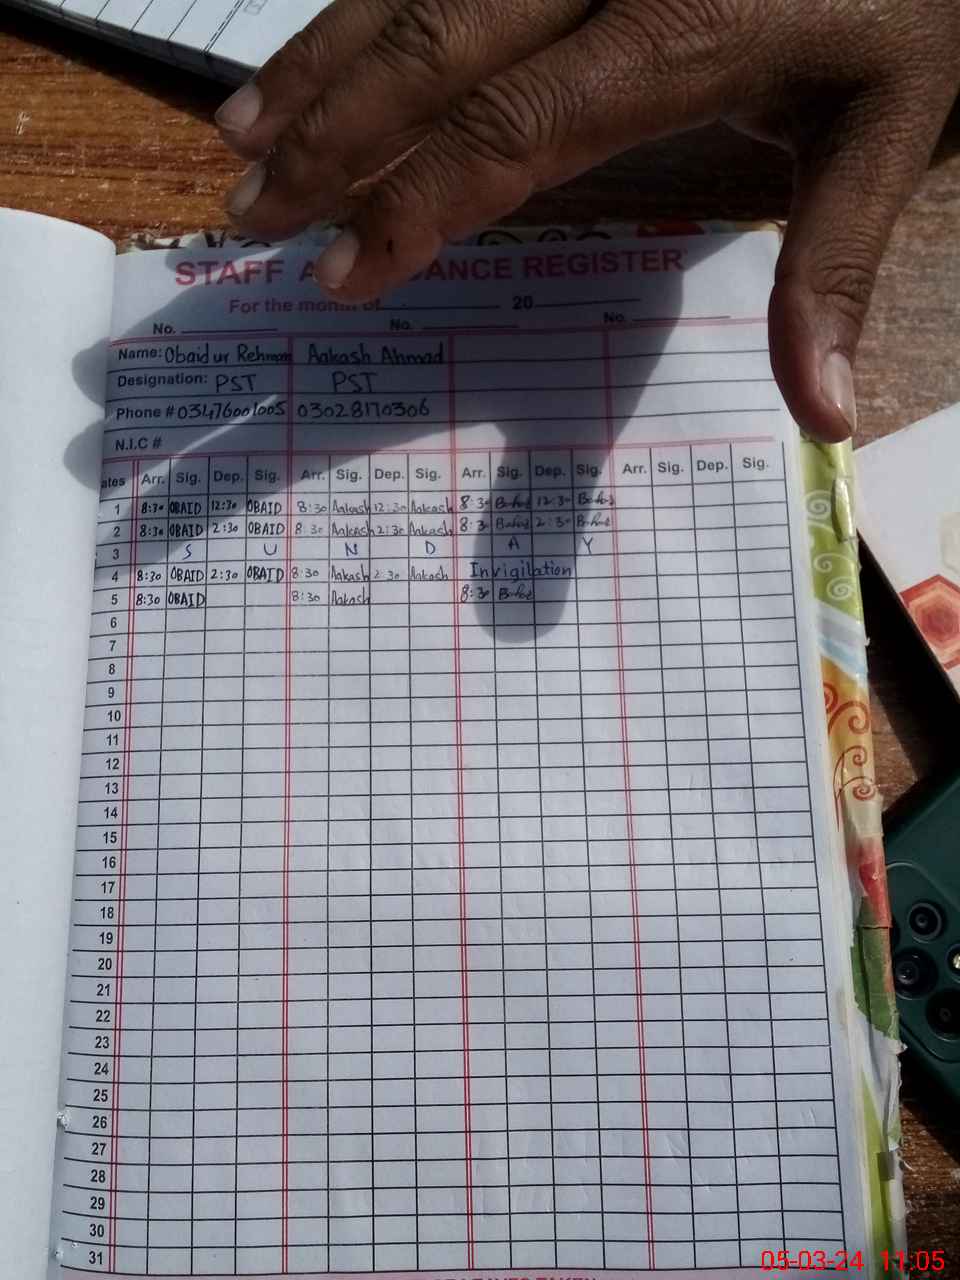 STAFF ATTENDANCE REGISTER
For the month of 20
No. No. No.
Name: Obaid ur Rehman Aakash Ahmad
Designation: PST PST
Phone # 03476001005 03028170306
N.I.C #
ates Arr. Sig. Dep. Sig. Arr. Sig. Dep. Sig. Arr. Sig. Dep. Sig. Arr. Sig. Dep. Sig.
1 8:30 OBAID 12:30 OBAID 8:30 Aakash 12:30 Aakash 8:30 12:30
2 8:30 OBAID 2:30 OBAID 8:30 Aakash 2:30 Aakash 8:30 2:30
3 S U N D A Y
4 8:30 OBAID 2:30 OBAID 8:30 Aakash 2:30 Aakash Invigilation
5 8:30 OBAID 8:30 Aakash 8:30
6
7
8
9
10
11
12
13
14
15
16
17
18
19
20
21
22
23
24
25
26
27
28
29
30
31
05-03-24 11:05